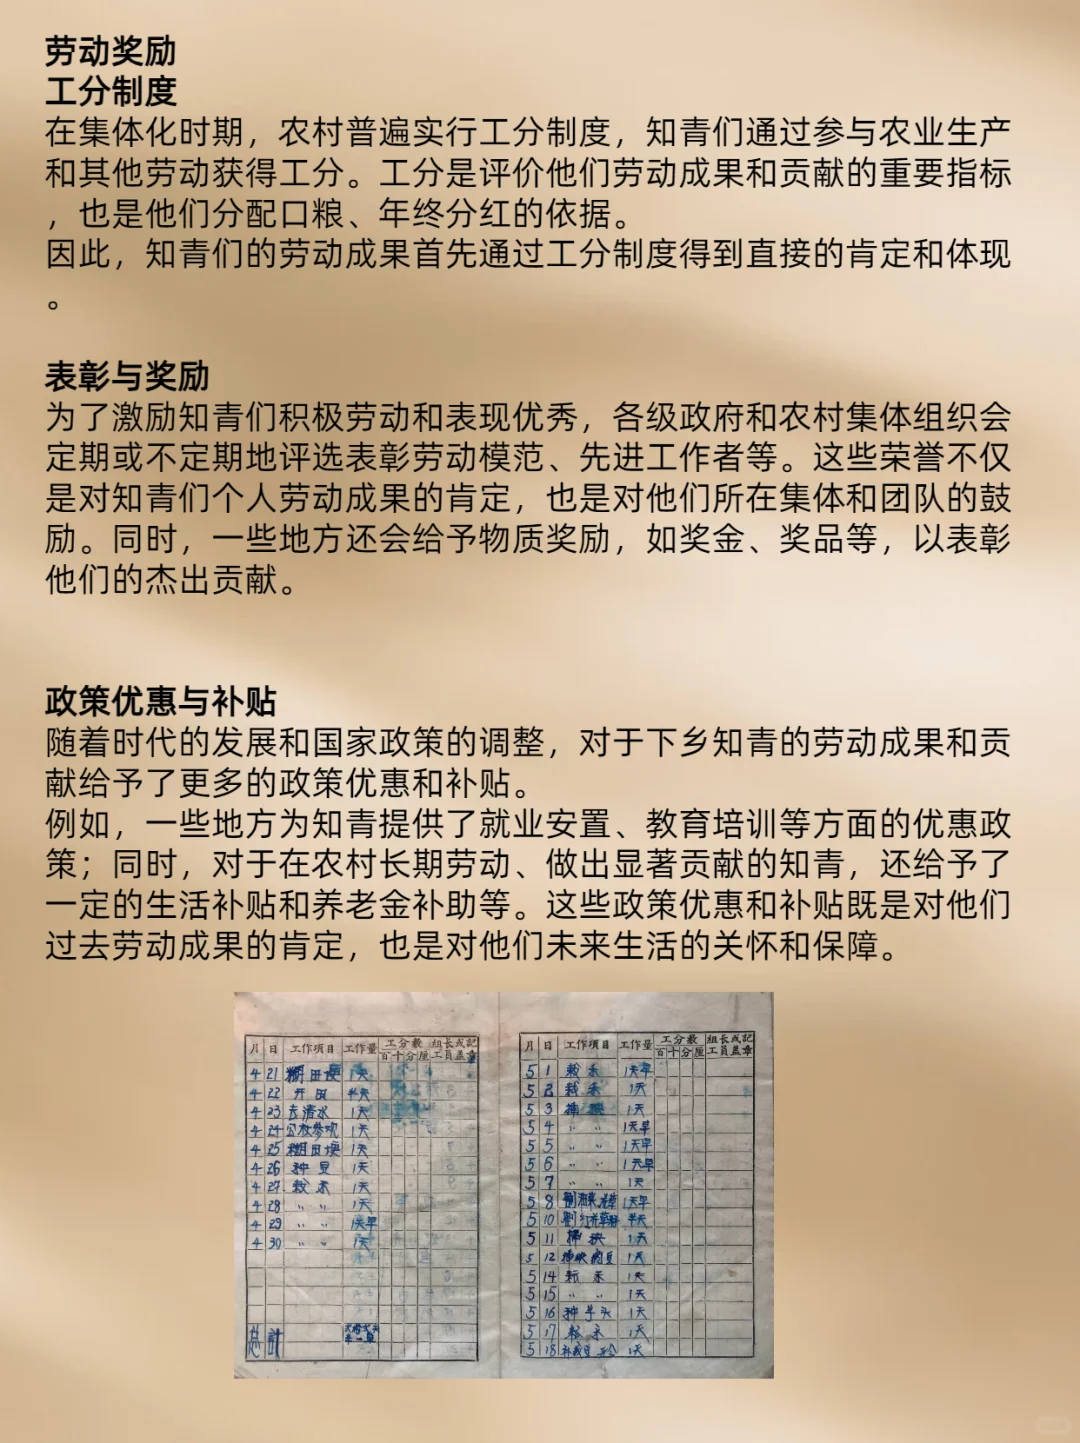 劳动奖励
工分制度
在集体化时期，农村普遍实行工分制度，知青们通过参与农业生产
和其他劳动获得工分。工分是评价他们劳动成果和贡献的重要指标
，也是他们分配口粮、年终分红的依据。
因此，知青们的劳动成果首先通过工分制度得到直接的肯定和体现
。
表彰与奖励
为了激励知青们积极劳动和表现优秀，各级政府和农村集体组织会
定期或不定期地评选表彰劳动模范、先进工作者等。这些荣誉不仅
是对知青们个人劳动成果的肯定，也是对他们所在集体和团队的鼓
励。同时，一些地方还会给予物质奖励，如奖金、奖品等，以表彰
他们的杰出贡献。
政策优惠与补贴
随着时代的发展和国家政策的调整，对于下乡知青的劳动成果和贡
献给予了更多的政策优惠和补贴。
例如，一些地方为知青提供了就业安置、教育培训等方面的优惠政
策；同时，对于在农村长期劳动、做出显著贡献的知青，还给予了
一定的生活补贴和养老金补助等。这些政策优惠和补贴既是对他们
过去劳动成果的肯定，也是对他们未来生活的关怀和保障。
月 日 工作项目 工作量 工分数 组长或記
百 十 分 厘 工員盖章
4 21 田 1天
4 22 开田 半天
4 23 清水 1天
4 24 1天
4 25 田 1天
4 26 种豆 1天
4 27 1天
4 28 〃 〃 1天
4 29 〃 〃 1天早
4 30 〃 〃 1天
总計
月 日 工作項目 工作量 工分数 組长或記
百 十 分 厘 工員盖章
5 1 1天早
5 2 1天
5 3 1天
5 4 〃 〃 1天早
5 5 〃 〃 1天早
5 6 〃 〃 1天早
5 7 〃 〃 1天
5 8 1天早
5 10 半天
5 11 1天
5 12 1天
5 14 1天
5 15 〃 〃 1天
5 16 种芋头 1天
5 17 1天
5 18 1天